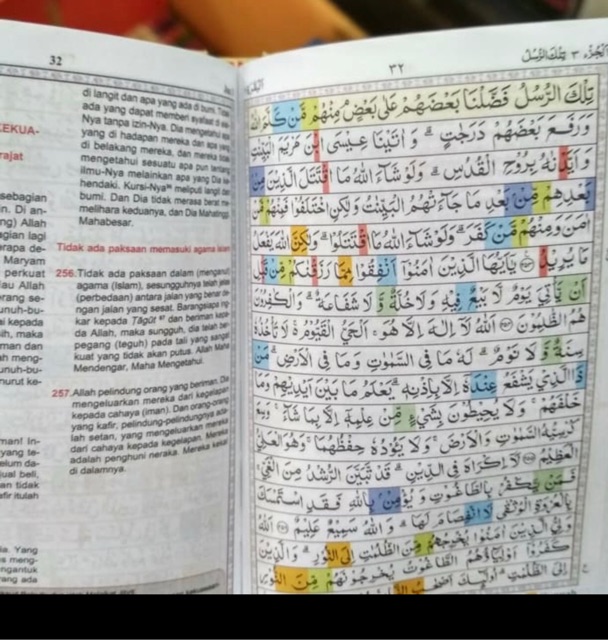 32
EKUA-
rajat
sebagian
n. Di an-
ng) Allah
agian lagi
erapa de-
Maryam
perkuat
iau Allah
rang se-
unuh-bu-
i kepada
ih, maka
man dan
h meng-
unuh-bu-
nurut ke-
man! In-
yang te-
elum da-
ual beli,
an tidak
afir itulah
ia. Yang
s meng-
ngantuk
ang ada
di langit dan apa yang ada di bumi. Tidak
ada yang dapat memberi syafaat di
Nya tanpa izin-Nya. Dia mengetahui
yang di hadapan mereka dan apa
di belakang mereka, dan mereka
mengetahui sesuatu apa pun tentang
ilmu-Nya melainkan apa yang Dia
hendaki. Kursi-Nya meliputi langit dan
bumi. Dan Dia tidak merasa berat
melihara keduanya, dan Dia Mahatinggi,
Mahabesar.
Tidak ada paksaan memasuki agama Islam
256. Tidak ada paksaan dalam (menganut)
agama (Islam), sesungguhnya telah jelas
(perbedaan) antara jalan yang benar
ngan jalan yang sesat. Barangsiapa
kar kepada Tāgūt dan beriman
da Allah, maka sungguh, dia telah
pegang (teguh) pada tali yang sangat
kuat yang tidak akan putus. Allah Maha
Mendengar, Maha Mengetahui.
257. Allah pelindung orang yang beriman. Dia
mengeluarkan mereka dari kegelapan
kepada cahaya (iman). Dan orang-orang
yang kafir, pelindung-pelindungnya
lah setan, yang mengeluarkan mereka
dari cahaya kepada kegelapan. Mereka
adalah penghuni neraka. Mereka kekal
di dalamnya.
٣٢
الجزء ٣ تلك الرسل
تِلْكَ الرُّسُلُ فَضَّلْنَا بَعْضَهُمْ عَلٰى بَعْضٍ مِنْهُمْ مَّنْ كَلَّمَ اللّٰهُ
وَرَفَعَ بَعْضَهُمْ دَرَجٰتٍ وَاٰتَيْنَا عِيْسَى ابْنَ مَرْيَمَ الْبَيِّنٰتِ
وَاَيَّدْنٰهُ بِرُوْحِ الْقُدُسِ وَلَوْ شَاۤءَ اللّٰهُ مَا اقْتَتَلَ الَّذِيْنَ مِنْ
بَعْدِهِمْ مِّنْ بَعْدِ مَا جَاۤءَتْهُمُ الْبَيِّنٰتُ وَلٰكِنِ اخْتَلَفُوْا فَمِنْهُمْ مَّنْ
اٰمَنَ وَمِنْهُمْ مَّنْ كَفَرَ وَلَوْ شَاۤءَ اللّٰهُ مَا اقْتَتَلُوْا وَلٰكِنَّ اللّٰهَ يَفْعَلُ
مَا يُرِيْدُ يٰٓاَيُّهَا الَّذِيْنَ اٰمَنُوْٓا اَنْفِقُوْا مِمَّا رَزَقْنٰكُمْ مِّنْ قَبْلِ
اَنْ يَّأْتِيَ يَوْمٌ لَّا بَيْعٌ فِيْهِ وَلَا خُلَّةٌ وَّلَا شَفَاعَةٌ وَالْكٰفِرُوْنَ
هُمُ الظّٰلِمُوْنَ اَللّٰهُ لَآ اِلٰهَ اِلَّا هُوَ الْحَيُّ الْقَيُّوْمُ لَا تَأْخُذُهٗ
سِنَةٌ وَّلَا نَوْمٌ لَهٗ مَا فِى السَّمٰوٰتِ وَمَا فِى الْاَرْضِ مَنْ
ذَا الَّذِيْ يَشْفَعُ عِنْدَهٗٓ اِلَّا بِاِذْنِهٖ يَعْلَمُ مَا بَيْنَ اَيْدِيْهِمْ وَمَا
خَلْفَهُمْ وَلَا يُحِيْطُوْنَ بِشَيْءٍ مِّنْ عِلْمِهٖٓ اِلَّا بِمَا شَاۤءَ وَسِعَ
كُرْسِيُّهُ السَّمٰوٰتِ وَالْاَرْضَ وَلَا يَـُٔوْدُهٗ حِفْظُهُمَا وَهُوَ الْعَلِيُّ
الْعَظِيْمُ لَآ اِكْرَاهَ فِى الدِّيْنِ قَدْ تَّبَيَّنَ الرُّشْدُ مِنَ الْغَيِّ
فَمَنْ يَّكْفُرْ بِالطَّاغُوْتِ وَيُؤْمِنْ بِاللّٰهِ فَقَدِ اسْتَمْسَكَ
بِالْعُرْوَةِ الْوُثْقٰى لَا انْفِصَامَ لَهَا وَاللّٰهُ سَمِيْعٌ عَلِيْمٌ اَللّٰهُ
وَلِيُّ الَّذِيْنَ اٰمَنُوْا يُخْرِجُهُمْ مِّنَ الظُّلُمٰتِ اِلَى النُّوْرِ وَالَّذِيْنَ
كَفَرُوْٓا اَوْلِيَاۤؤُهُمُ الطَّاغُوْتُ يُخْرِجُوْنَهُمْ مِّنَ النُّوْرِ
اِلَى الظُّلُمٰتِ اُولٰۤىِٕكَ اَصْحٰبُ